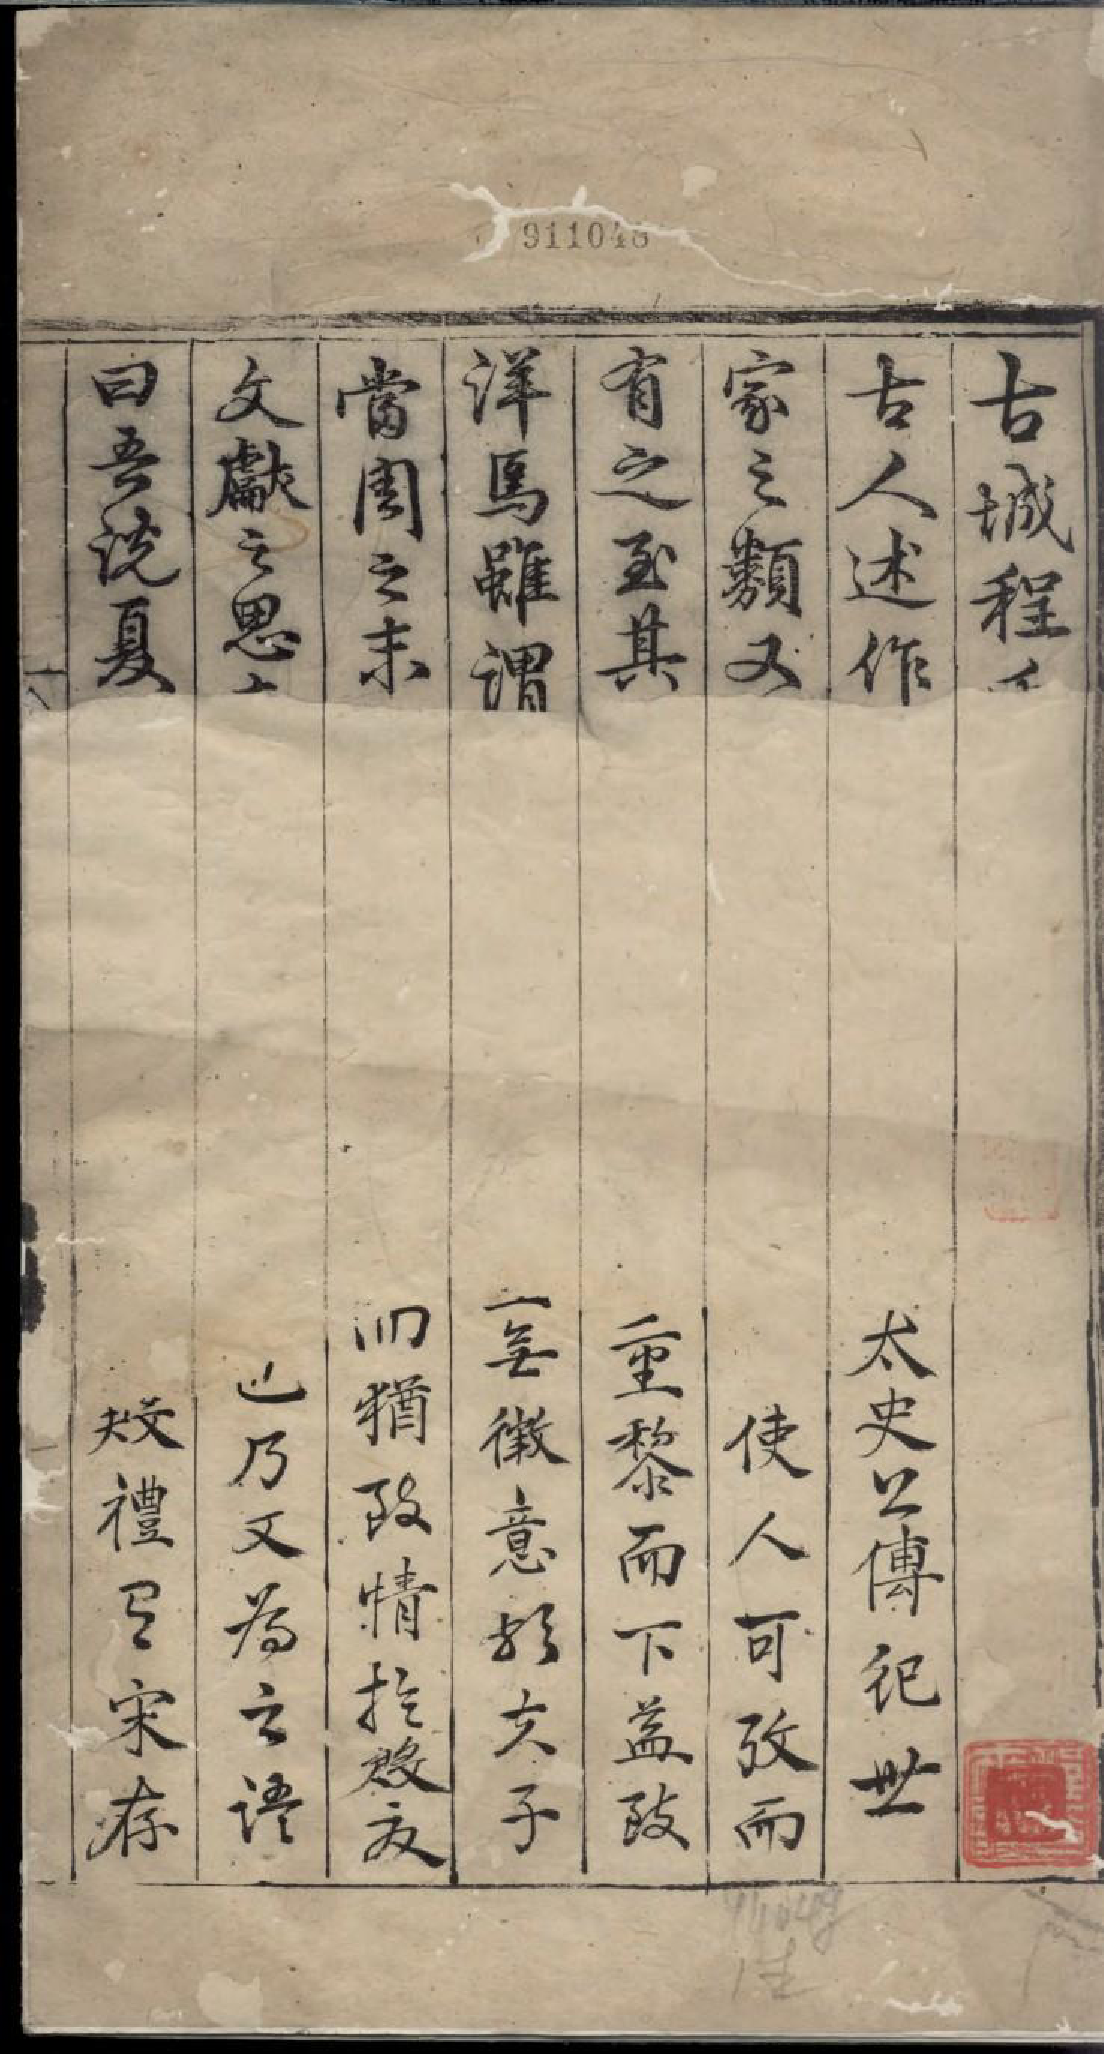 911048
古城程
古人述作太史公傳紀世
家之類又使人可攷而
有之至其重黎而下益致
洋焉雖謂無徵意於夫子
當周之末猶致情於殷夏
文獻之思乃文為之語
曰吾説夏禮有宋存